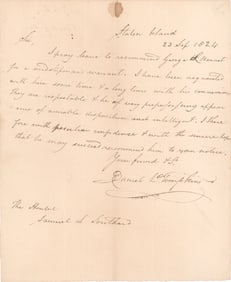 Staten Island
23 Sep 1824
Sir,
I pray leave to recommend George
for a midshipman warrant. I have been acquainted
with him some time & a long time with his connexions
they are respectable & he of very prepossessing appear
amiable disposition and intelligent. I there
fore with peculiar confidence & with the sincere hope
that he may succeed recommend him to your notice.
Your friend &c.
Daniel D Tompkins
The Honble
Samuel L Southard